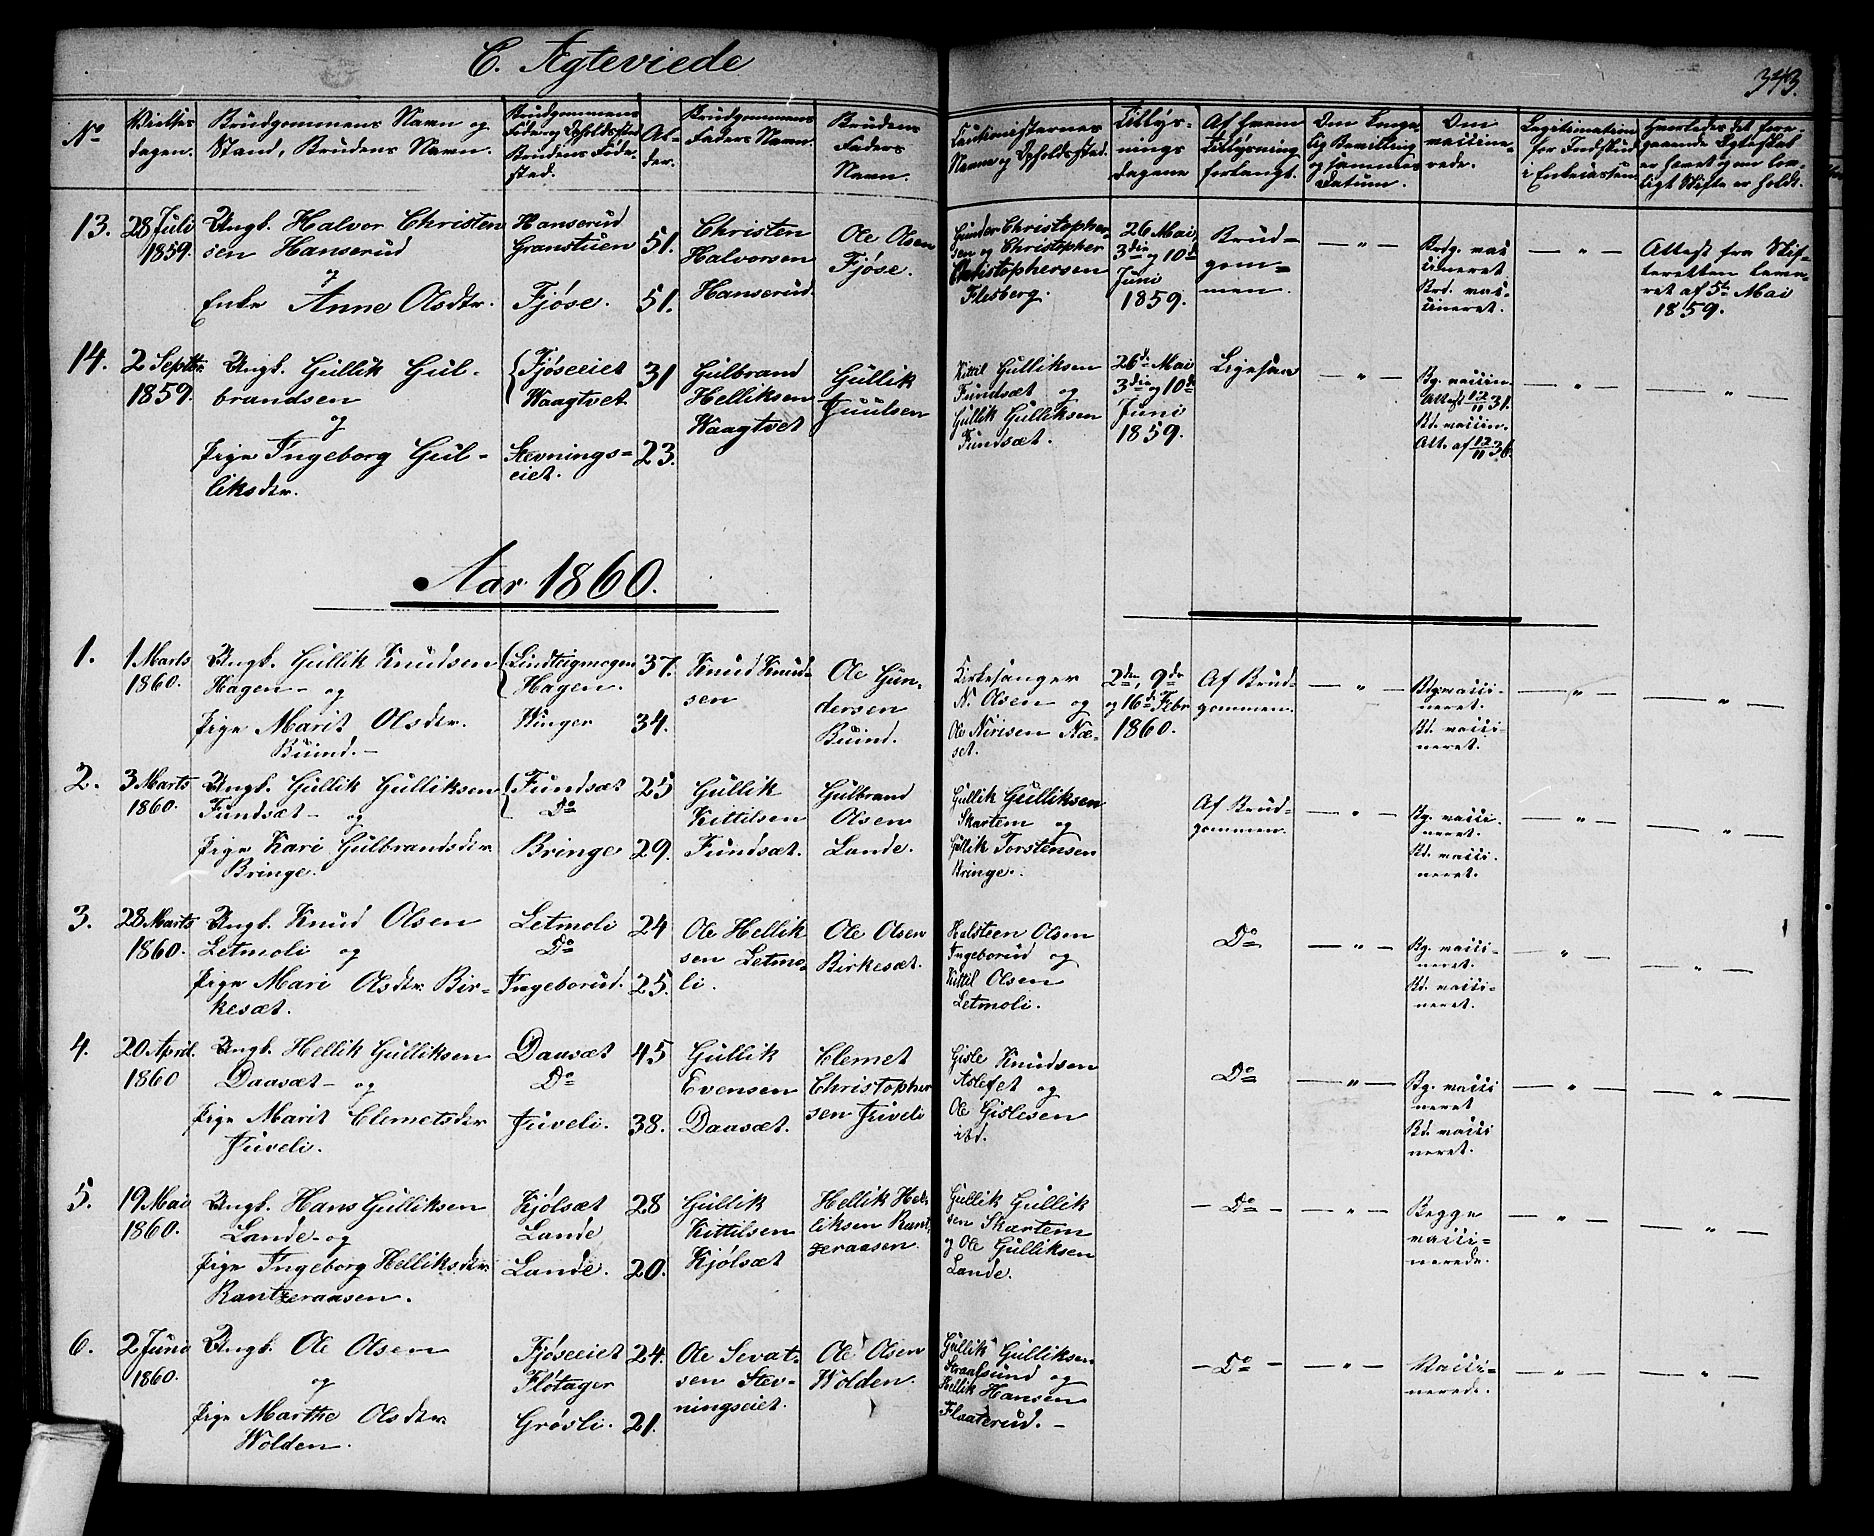 C. Ægteviede
343.
No
Vielses
dagen.
Brudgommens Navn og
Stand, Brudens Navn.
Brudgommens
Føde og Opholdssted
Brudens Føde-
sted.
Al-
der.
Brudgommens
Faders Navn.
Brudens
Faders
Navn.
Cautionisternes
Navne og Opholdssted.
Tillys-
nings
dagene
Af hvem
Tillysning
forlangt.
Den konge-
lig Bevilling
og sammes
Datum.
Om
vaccine-
rede.
Legitimation
for Indskud
i Enkecassen
Hvorledes det fore-
gaaende Ægteskab
er hævet og om lov-
ligt Skifte er holdt.
13.
28 Juli
1859.
Ungk. Halvor Christen
sen Hanserud
og
Enke Anne Olsdtr.
Hanserud
Granstuen
Fjøse.
51.
51.
Christen
Halvorsen
Hanserud
Ole Olsen
Fjøse.
Gunder Christopher-
sen og Christopher
Christophersen
Flesberg.
26 Mai
3die og 10d
Juni
1859.
Brud-
gom-
men.
— " —
Brdg. vac
cineret.
Brd. vac-
cineret.
— " —
Attest fra Skif-
teretten leve-
ret af 5te Mai
1859.
14.
2 Septbr
1859.
Ungk. Gullik Gul-
brandsen
og
Pige Ingeborg Gul-
liksdtr.
Fjøseeiet
Waagtvet
Stevnings-
eiet.
31
23.
Gulbrand
Helliksen
Waagtvet
Gullik
Juulsen
Kittil Gulliksen
Fundsæt og
Gullik Gulliksen
Fundsæt.
26d Mai
3die og 10de
Juni
1859.
Ligesaa
— " —
Bg. vaccin.
Attest 12/11 31.
Bd. vaccin.
Att. af 12/11 36.
— " —
— " —
Aar 1860.
1.
1 Marts
1860.
Ungk. Gullik Knudsen
Hagen - og
Pige Marit Olsdtr.
Buind. -
Lindteigmogen
Hagen.
Winger
37.
34.
Knud Knud-
sen
Ole Gun-
dersen
Buind.
Kirkesanger
N. Olsen og
Ole Nirisen Næ-
set.
2den, 9de
og 16d Febr
1860.
Af Brud-
gommen.
— " —
Bg. vacci-
neret.
Bd. vacci-
neret.
— " —
— " —
2.
3 Marts
1860.
Ungk. Gullik Gulliksen
Fundsæt - og
Pige Kari Gulbrandsdtr
Bringe.
Fundsæt
Do
Bringe
25
29.
Gullik
Kittilsen
Fundsæt.
Gulbrand
Olsen
Lande.
Gullik Gulliksen
Skartem og
Gullik Torstensen
Bringe.
Af Brud-
gommen.
— " —
Bg. vacci-
neret.
Bd. vacci-
neret.
— " —
— " —
3.
28 Marts
1860.
Ungk. Knud Olsen
Letmoli og
Pige Mari Olsdtr Bir-
kesæt.
Letmoli
Do
Ingeborud.
24
25.
Ole Hellik
sen Letmo-
li.
Ole Olsen
Birkesæt.
Halsteen Olsen
Ingeborud og
Kittil Olsen
Letmoli.
Do
— " —
Bg. vacci-
neret.
Bd. vacci-
neret.
— " —
— " —
4.
20 April.
1860
Ungk. Hellik Gulliksen
Daasæt - og
Pige Marit Clemetsdtr
Juveli.
Daasæt
Do
Juveli.
45
38.
Gullik
Evensen
Daasæt.
Clemet
Christopher
sen Juveli
Gisle Knudsen
Aslefet og
Ole Gislesen
ibd.
Do
— " —
Bg. vacci
neret
Bd. vacci
neret.
— " —
— " —
5.
19 Mai
1860.
Ungk. Hans Gulliksen
Lande - og
Pige Ingeborg Helliksdtr.
Rantzeraasen.
Kjølsæt
Lande
Lande.
28
20.
Gullik
Kittilsen
Kjølsæt
Hellik Hel-
liksen Rant
zeraasen.
Gullik Gullik
sen Skartem
og Ole Gulliksen
Lande.
- Do -
— " —
Begge
vacci-
nerede.
— " —
— " —
6.
2 Juni
1860.
Ungk. Ole Olsen
og
Pige Marthe Olsdtr.
Wolden.
Fjøseeiet
Fløtager
Grøsli.
24.
21.
Ole Sevat-
sen Stev-
ningseiet.
Ole Olsen
Wolden.
Gullik Gulliksen
Straalsund og
Hellik Hansen
Flaaterud. -
- Do -
— " —
Vacci-
nerede.
— " —
— " —